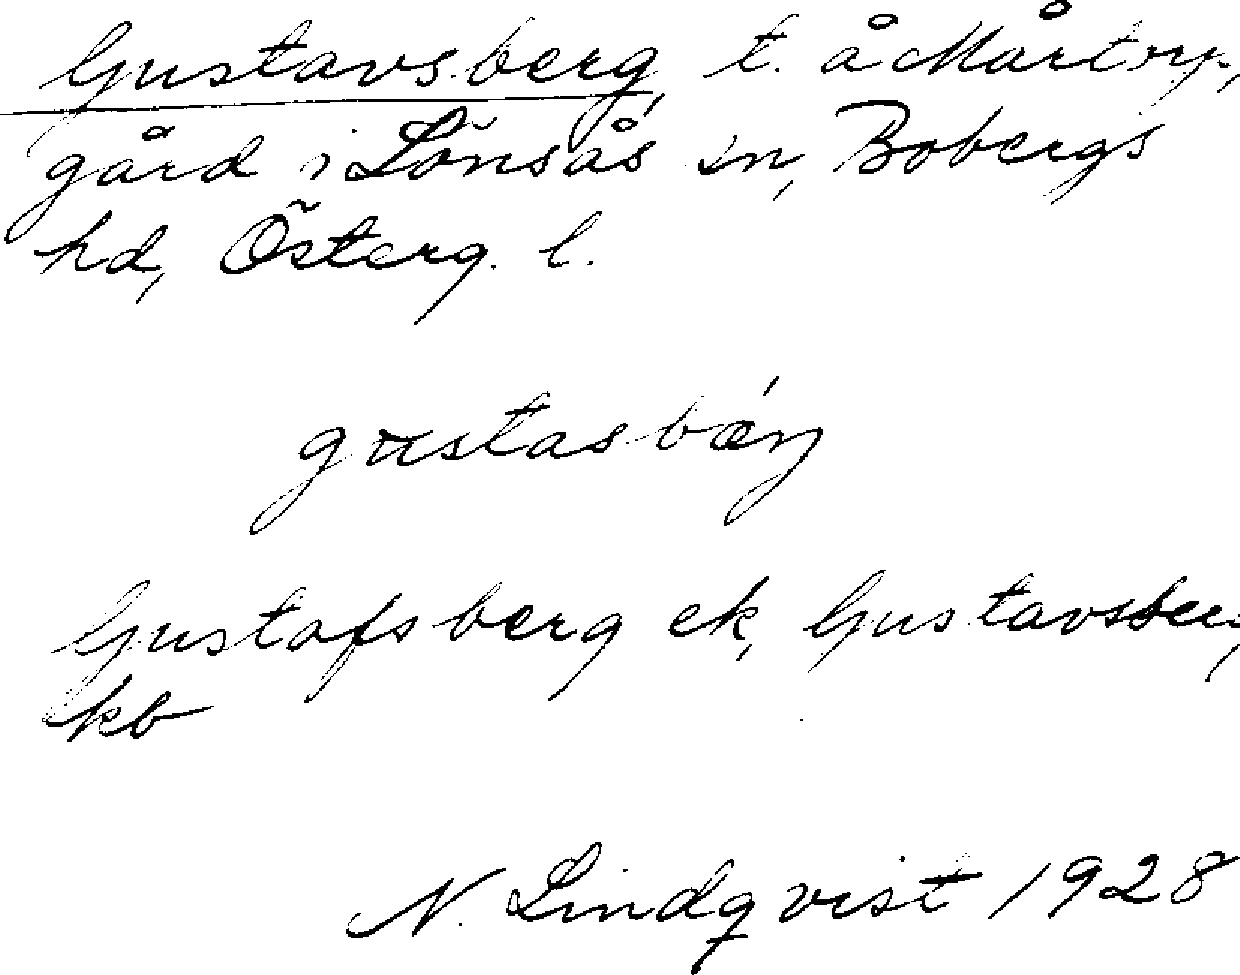 Gustavsberg, t. å Mårtorp,
gård i Lönsås sn, Bobergs
hd, Österg. l.
gustasbærj
Gustafsberg ek, Gustavsberg,
kb
N. Lindqvist 1928